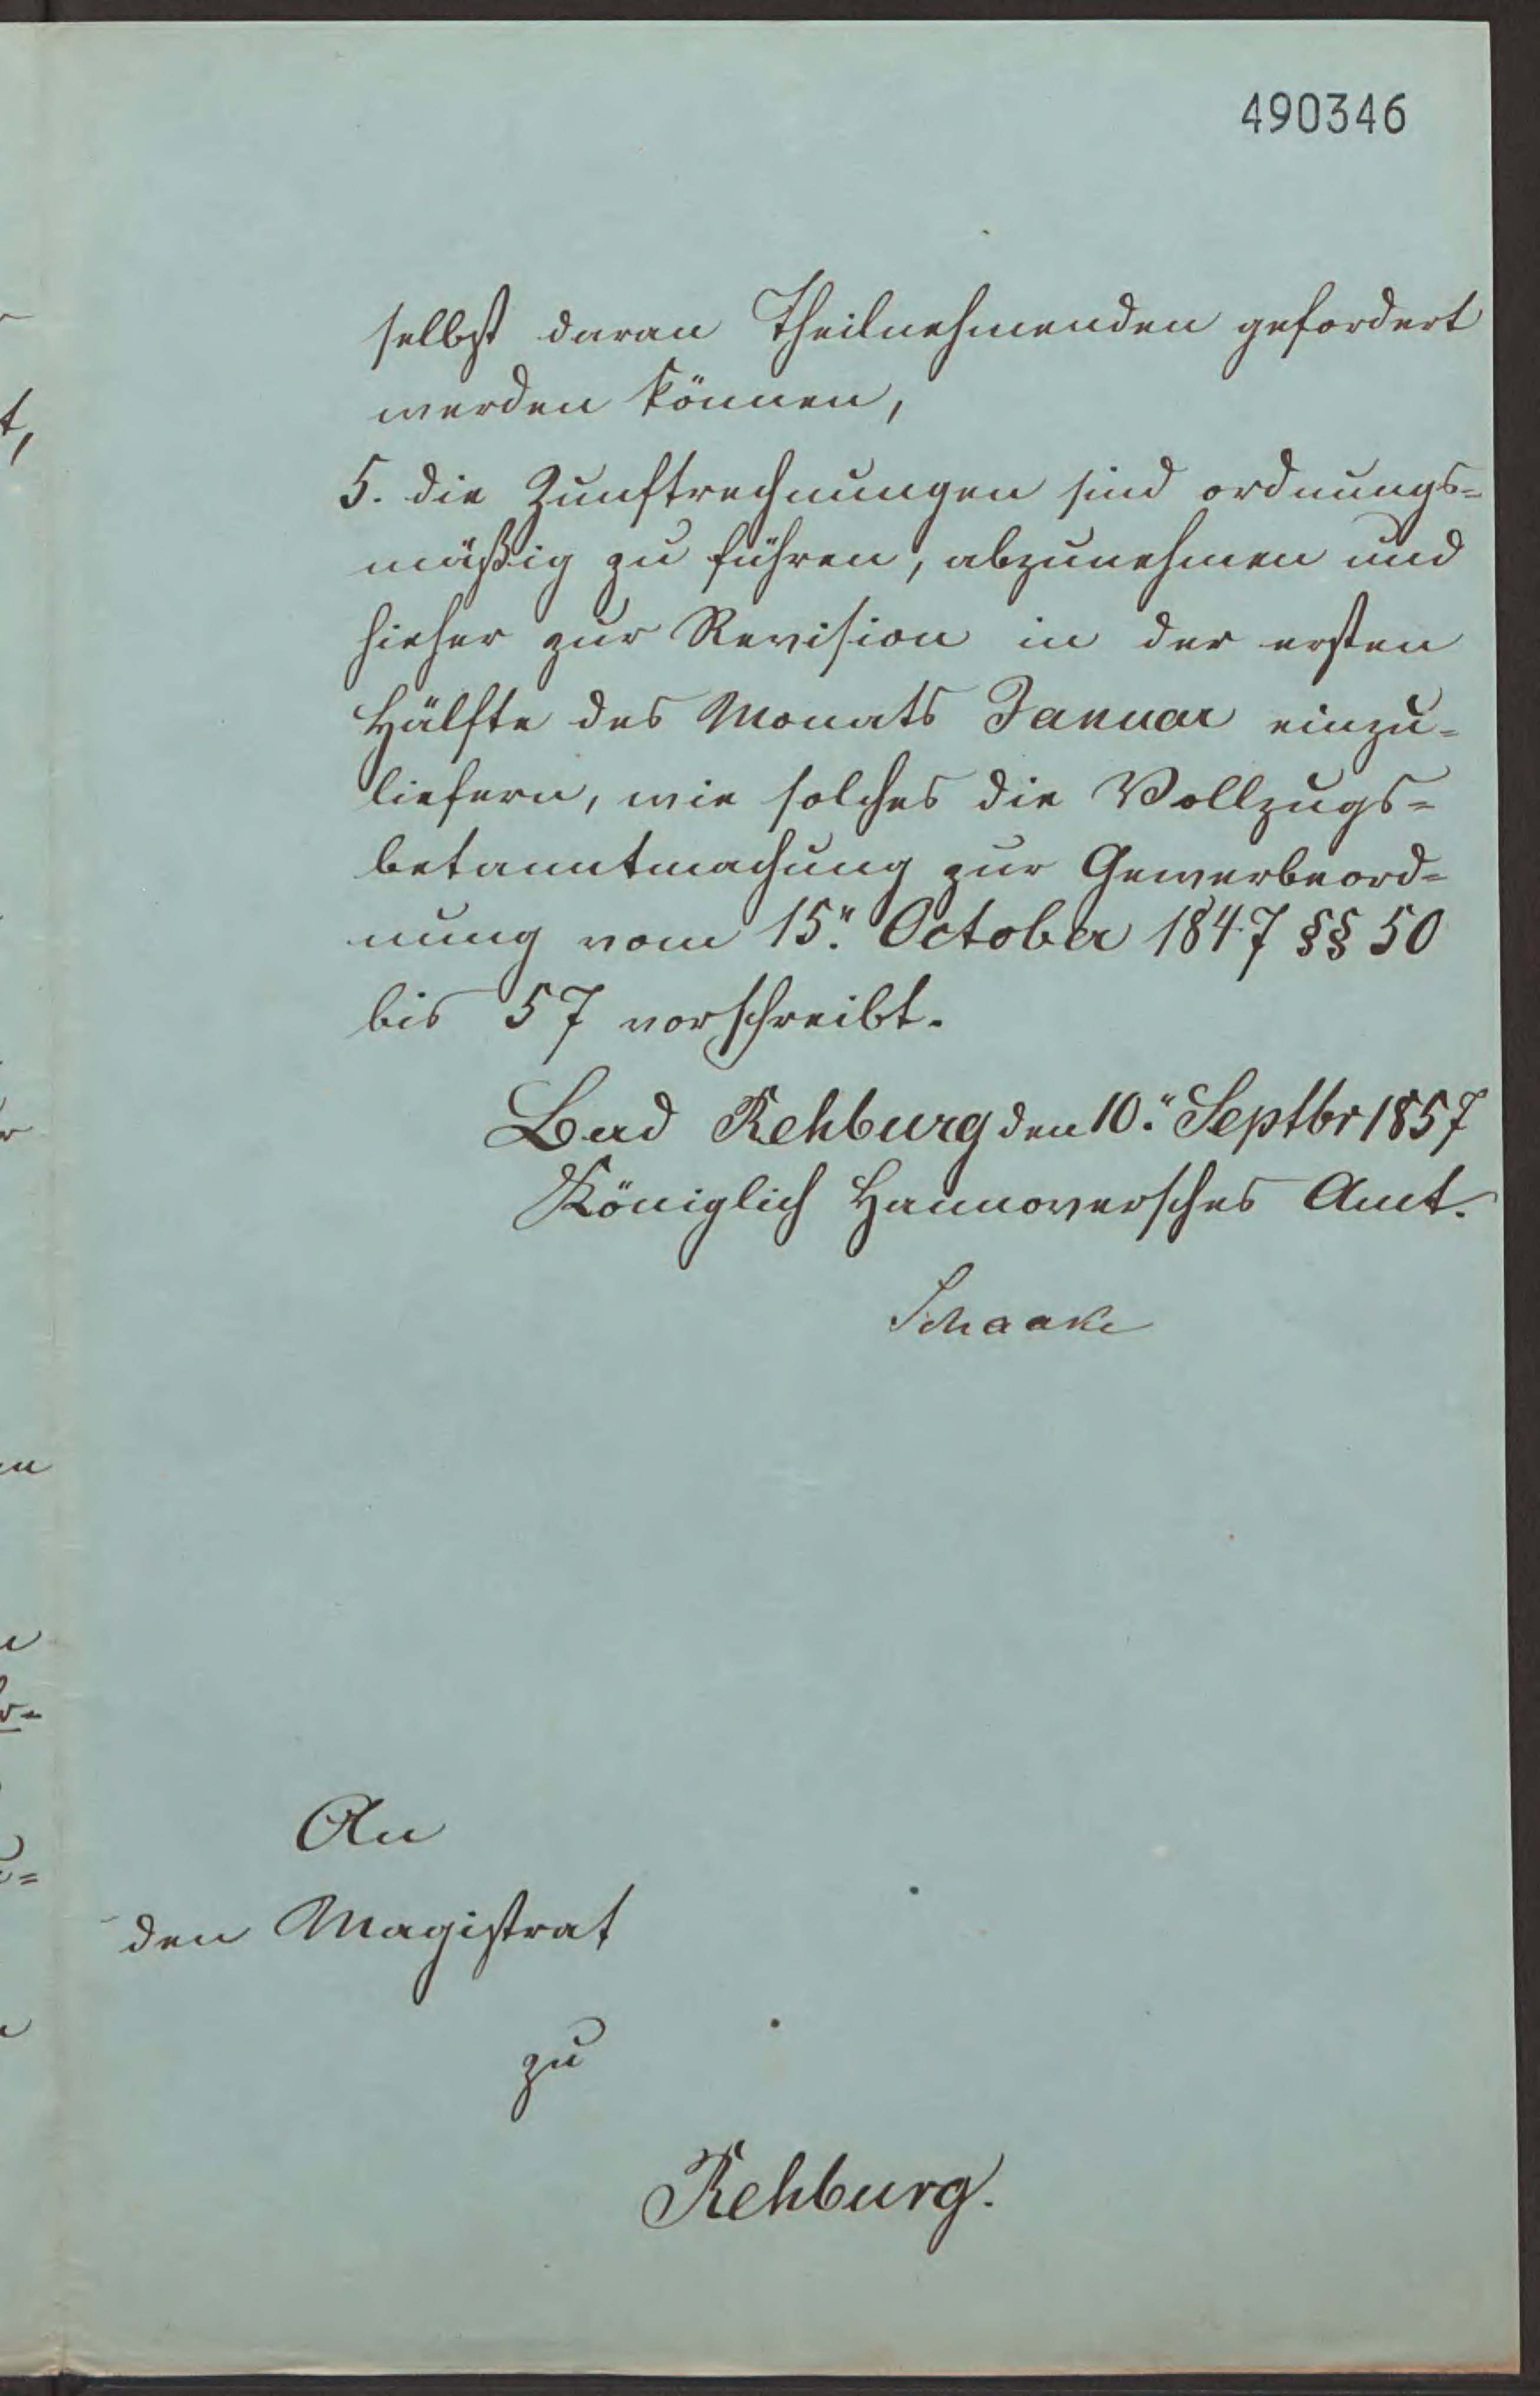 490346
selbst daran Theilnehmenden gefordert
werden können,
5. die Zunftrechnungen sind ordnungs=
mäßig zu führen, abzunehmen und
hieher zur Revision in der ersten
Hälfte des Monats Januar einzu=
liefern, wie solches die Vollzugs=
bekanntmachung zur Gewerbeord=
nung vom 15. October 1847 §§ 50
bis 57 vorschreibt.
Bad Rehburg den 10. Septbr 1857
Königlich Hannoversches Amt.
Schaake
An
den Magistrat
zu
Rehburg.